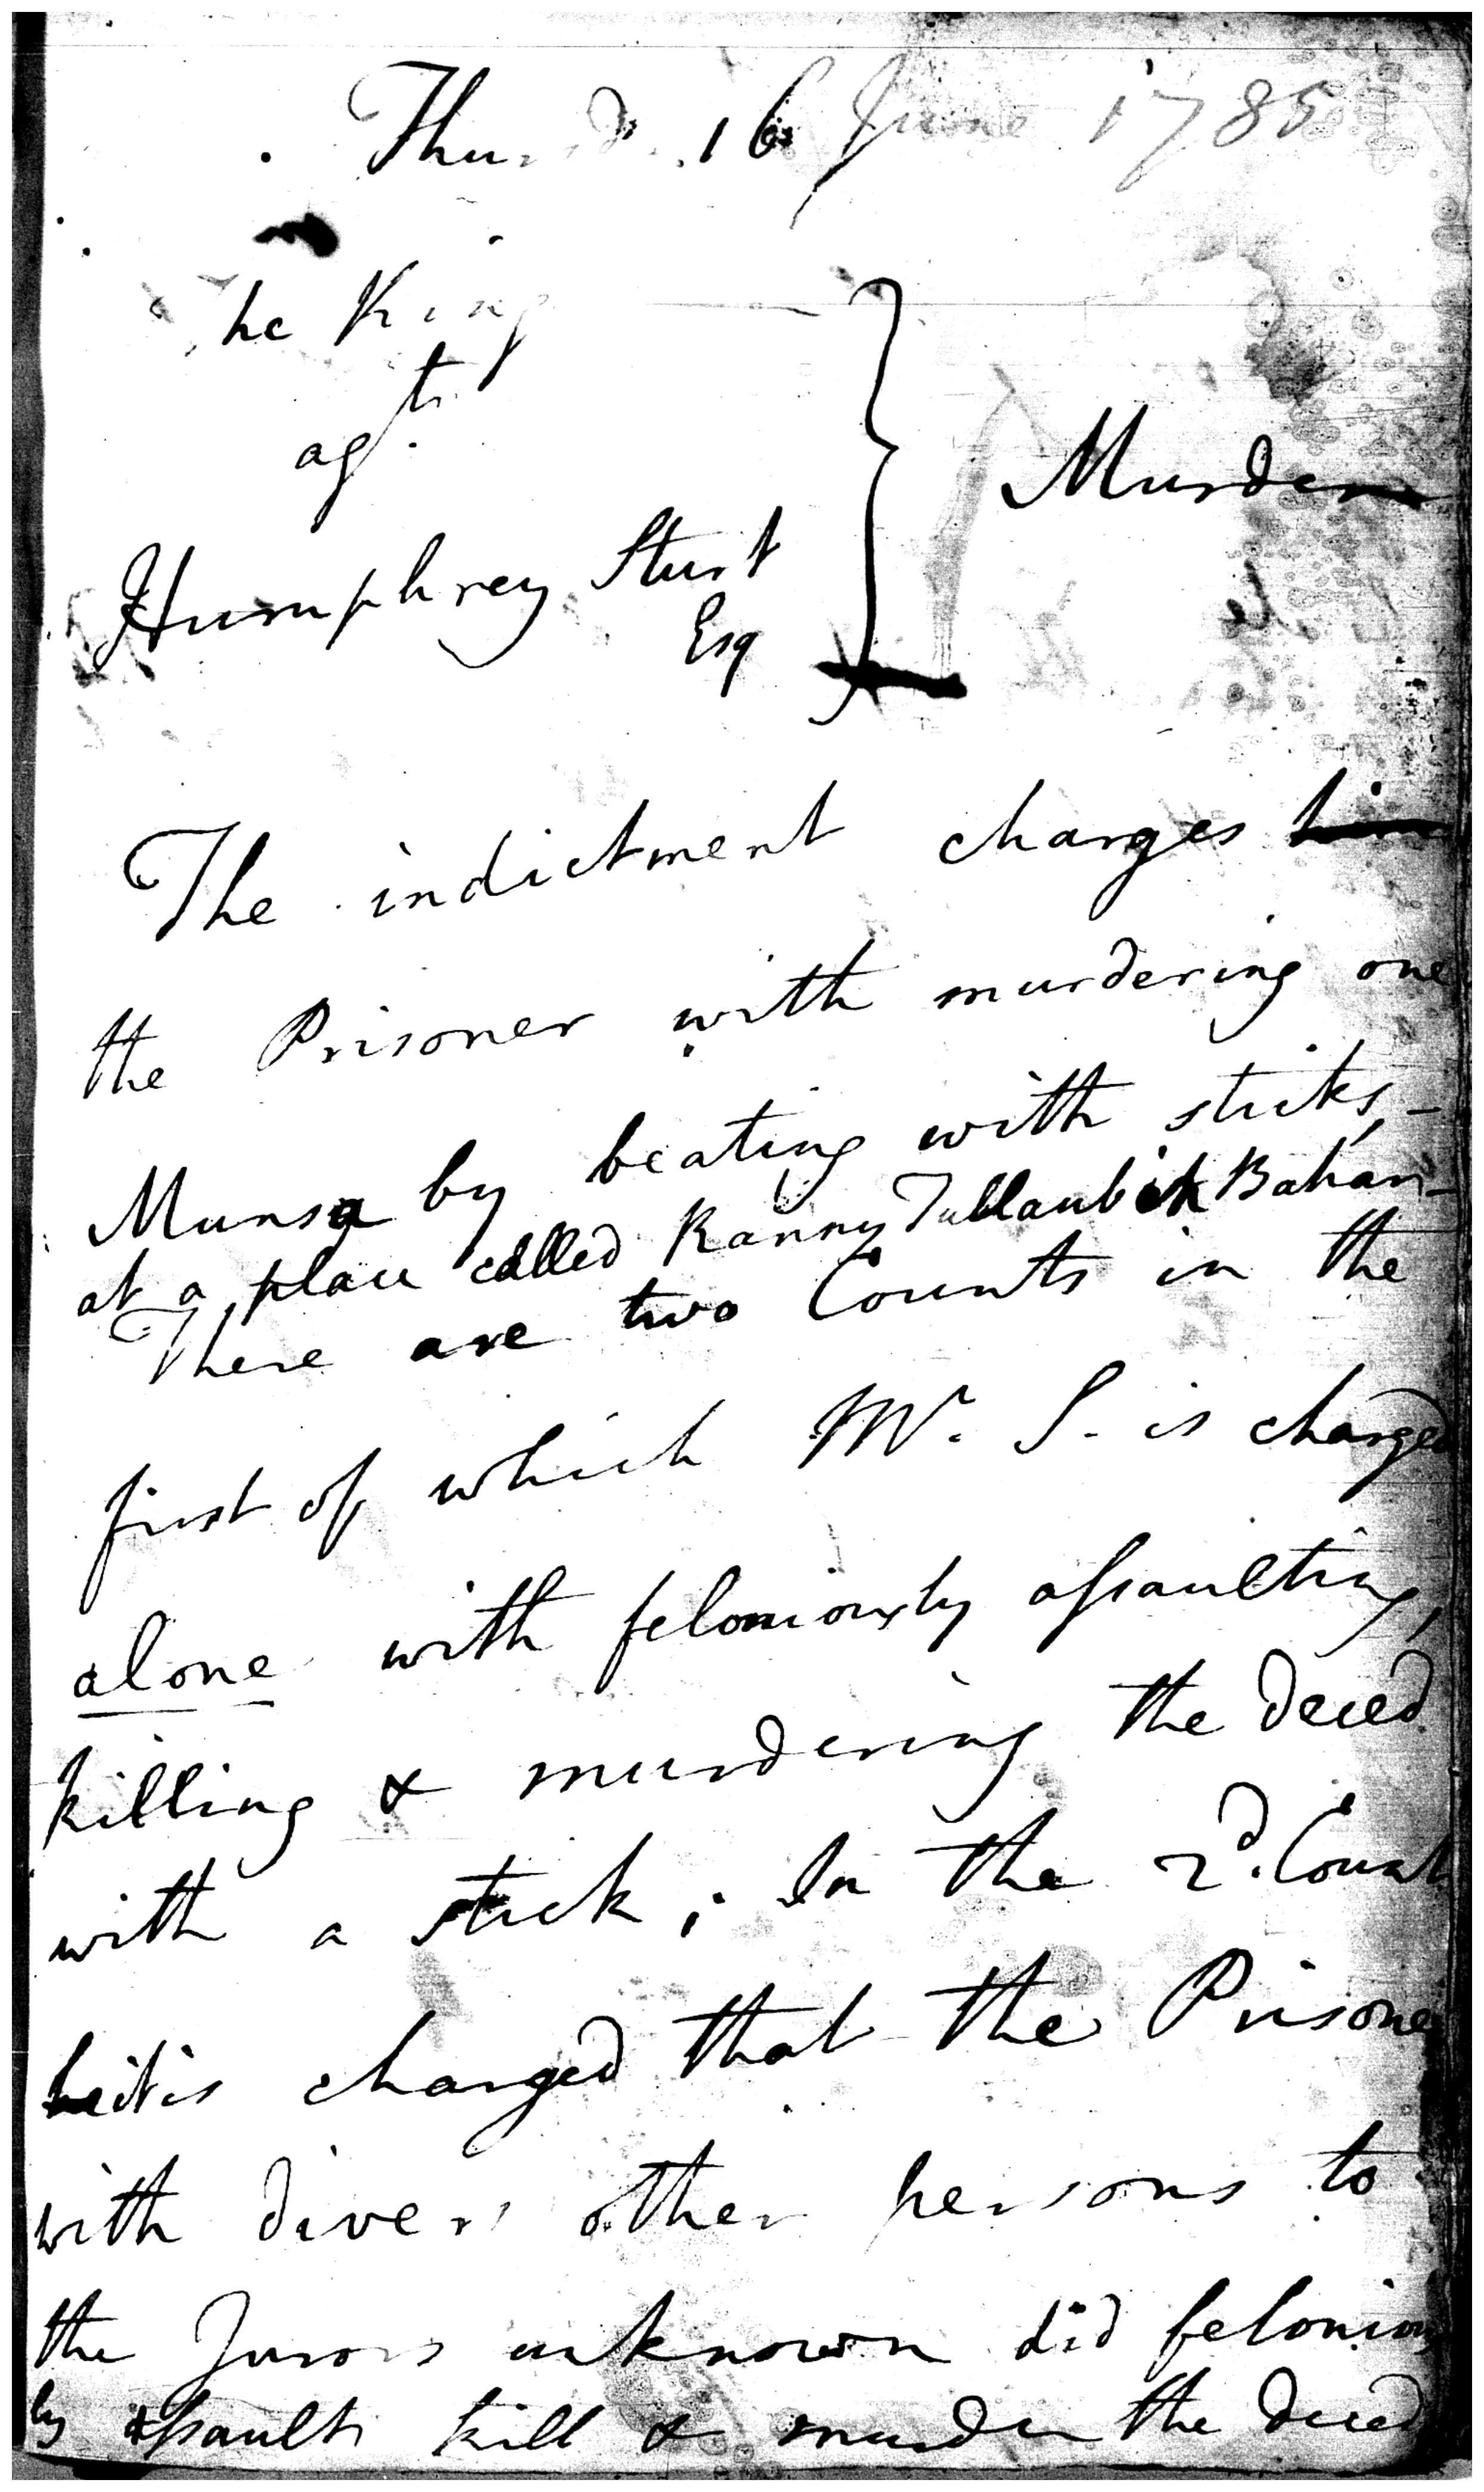 Thursd. 16 June 1785
The King
agt.
Humphrey Sturt
Esq
Murder
The indictment charges him
the Prisoner with murdering one
Munsa by beating with sticks,-
at a place called Ranny Tullaub in Bahar-
There are two Counts in the
first of which Mr. S. is charged
alone with feloniously assaulting,
killing & murdering the deced
with a stick; In the 2d. Count
it is charged that the Prisoner
with divers other persons to
the Jurors unknown did felonious
ly assault kill & murder the deced